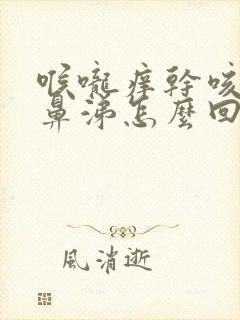 喉嚨癢幹咳
鼻涕怎麼回
風消逝